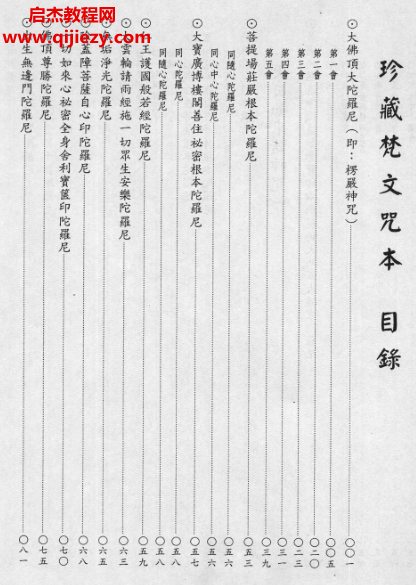 启杰教程网
www.qijiezy.com
珍藏梵文咒本 目錄
⊙大佛頂大陀羅尼（即：楞嚴神咒）○○一
第一會○○五
第二會○二○
第三會○二三
第四會○三一
第五會○三九
⊙菩提場莊嚴根本陀羅尼○五三
同隨心陀羅尼○五六
同心中心陀羅尼○五六
⊙大寶廣博樓閣善住祕密根本陀羅尼○五七
同心陀羅尼○五八
同隨心陀羅尼○五八
⊙王護國般若經陀羅尼○五九
⊙雲輪請雨經施一切眾生安樂陀羅尼○六三
⊙無垢淨光陀羅尼○六五
⊙蓋障菩薩自心印陀羅尼○六八
⊙切如來心祕密全身舍利寶篋印陀羅尼○七○
⊙佛頂尊勝陀羅尼○七五
⊙生無邊門陀羅尼○八一